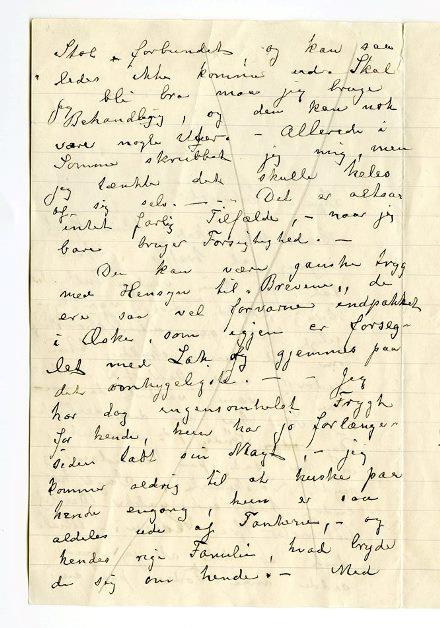 Stol + forbundet, og kan saa
ledes ikke komme ud. Skal
jeg bli bra maa jeg bruge
Behandling, og den kan nok
være nogle Uger. - Allerede i
Somme skrubbet jeg mig, men
jeg tænkte det skulle heles
af sig selv. - - Det er altsaa
intet farlig Tilfælde, - naar jeg
bare bruger Forsigtighed. -
Du kan være ganske tryg
med Hensyn til "Brevene", de
ere saa vel forvarne indpakket
i Æske, som igjen er forseg-
let med Lak og gjemmes paa
det omhygeligste. - - Jeg
har dog ingensomhelst Frygt
for hende, hun har jo forlænge-
siden tabt sin Magt, - jeg
kommer aldrig til at huske paa
hende engang, hun er saa
aldeles ude af Tankerne, - og
hendes rige Familie, hvad bryde
de sig om hende. - Med